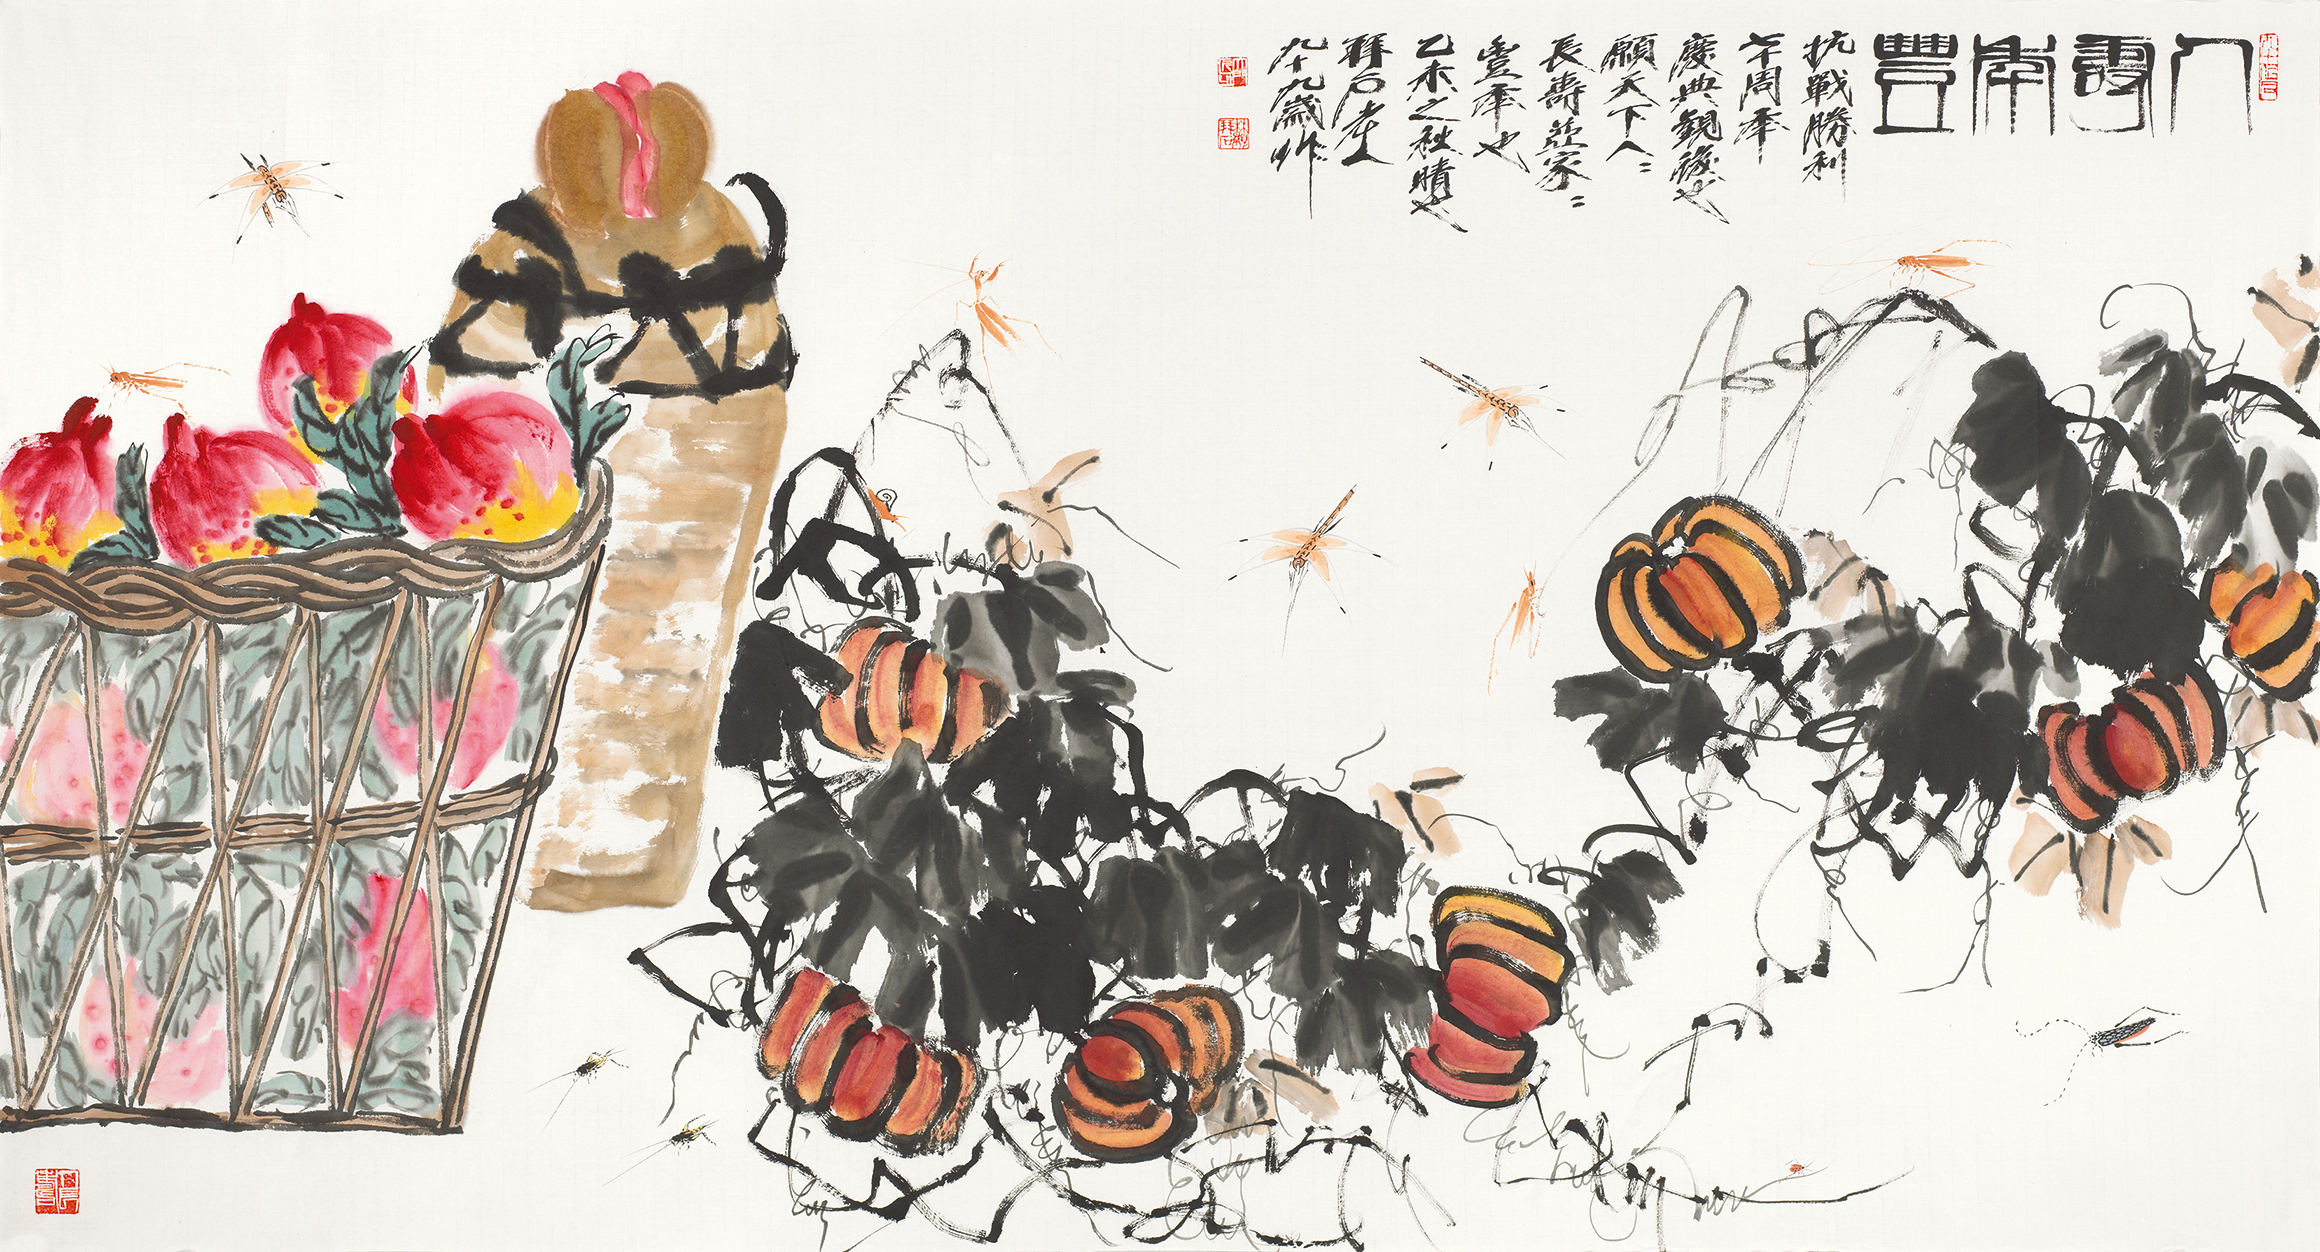 人壽年豐
抗戰勝利
七十周年
慶典觀後也
願天下人〻
長壽並家〻
豊年也
乙未之秋晴也
拜石老人
九十九歲作